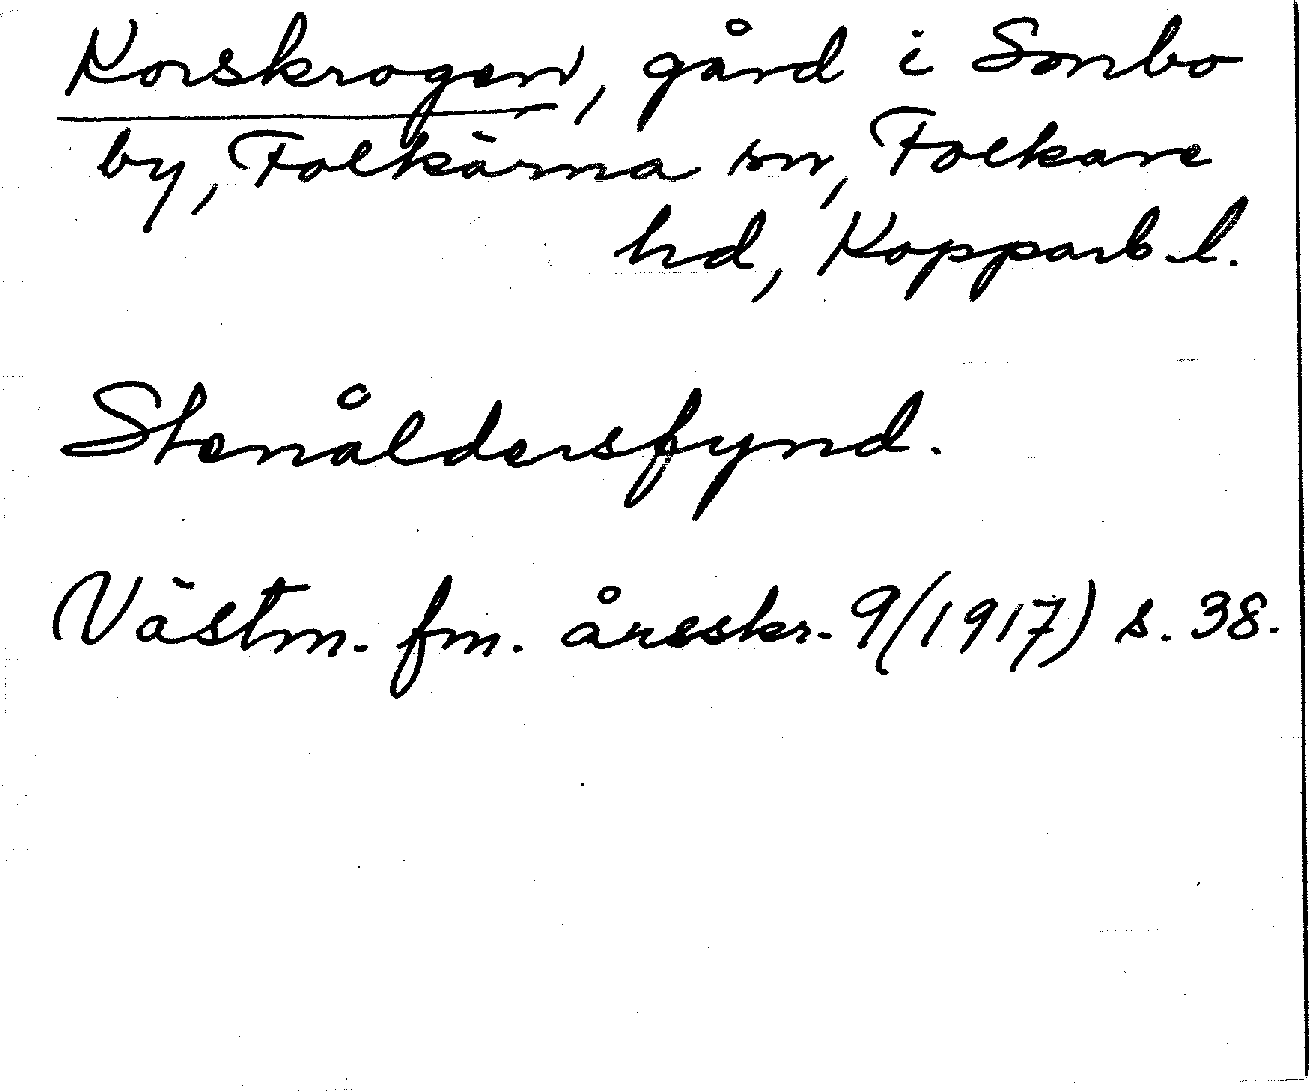 Korskrogen, gård i Sonbo
by, Folkärna sn, Folkare
hd, Kopparb. l.
Stenåldersfynd.
Västm. fm. årsskr. 9/1917) s. 38.